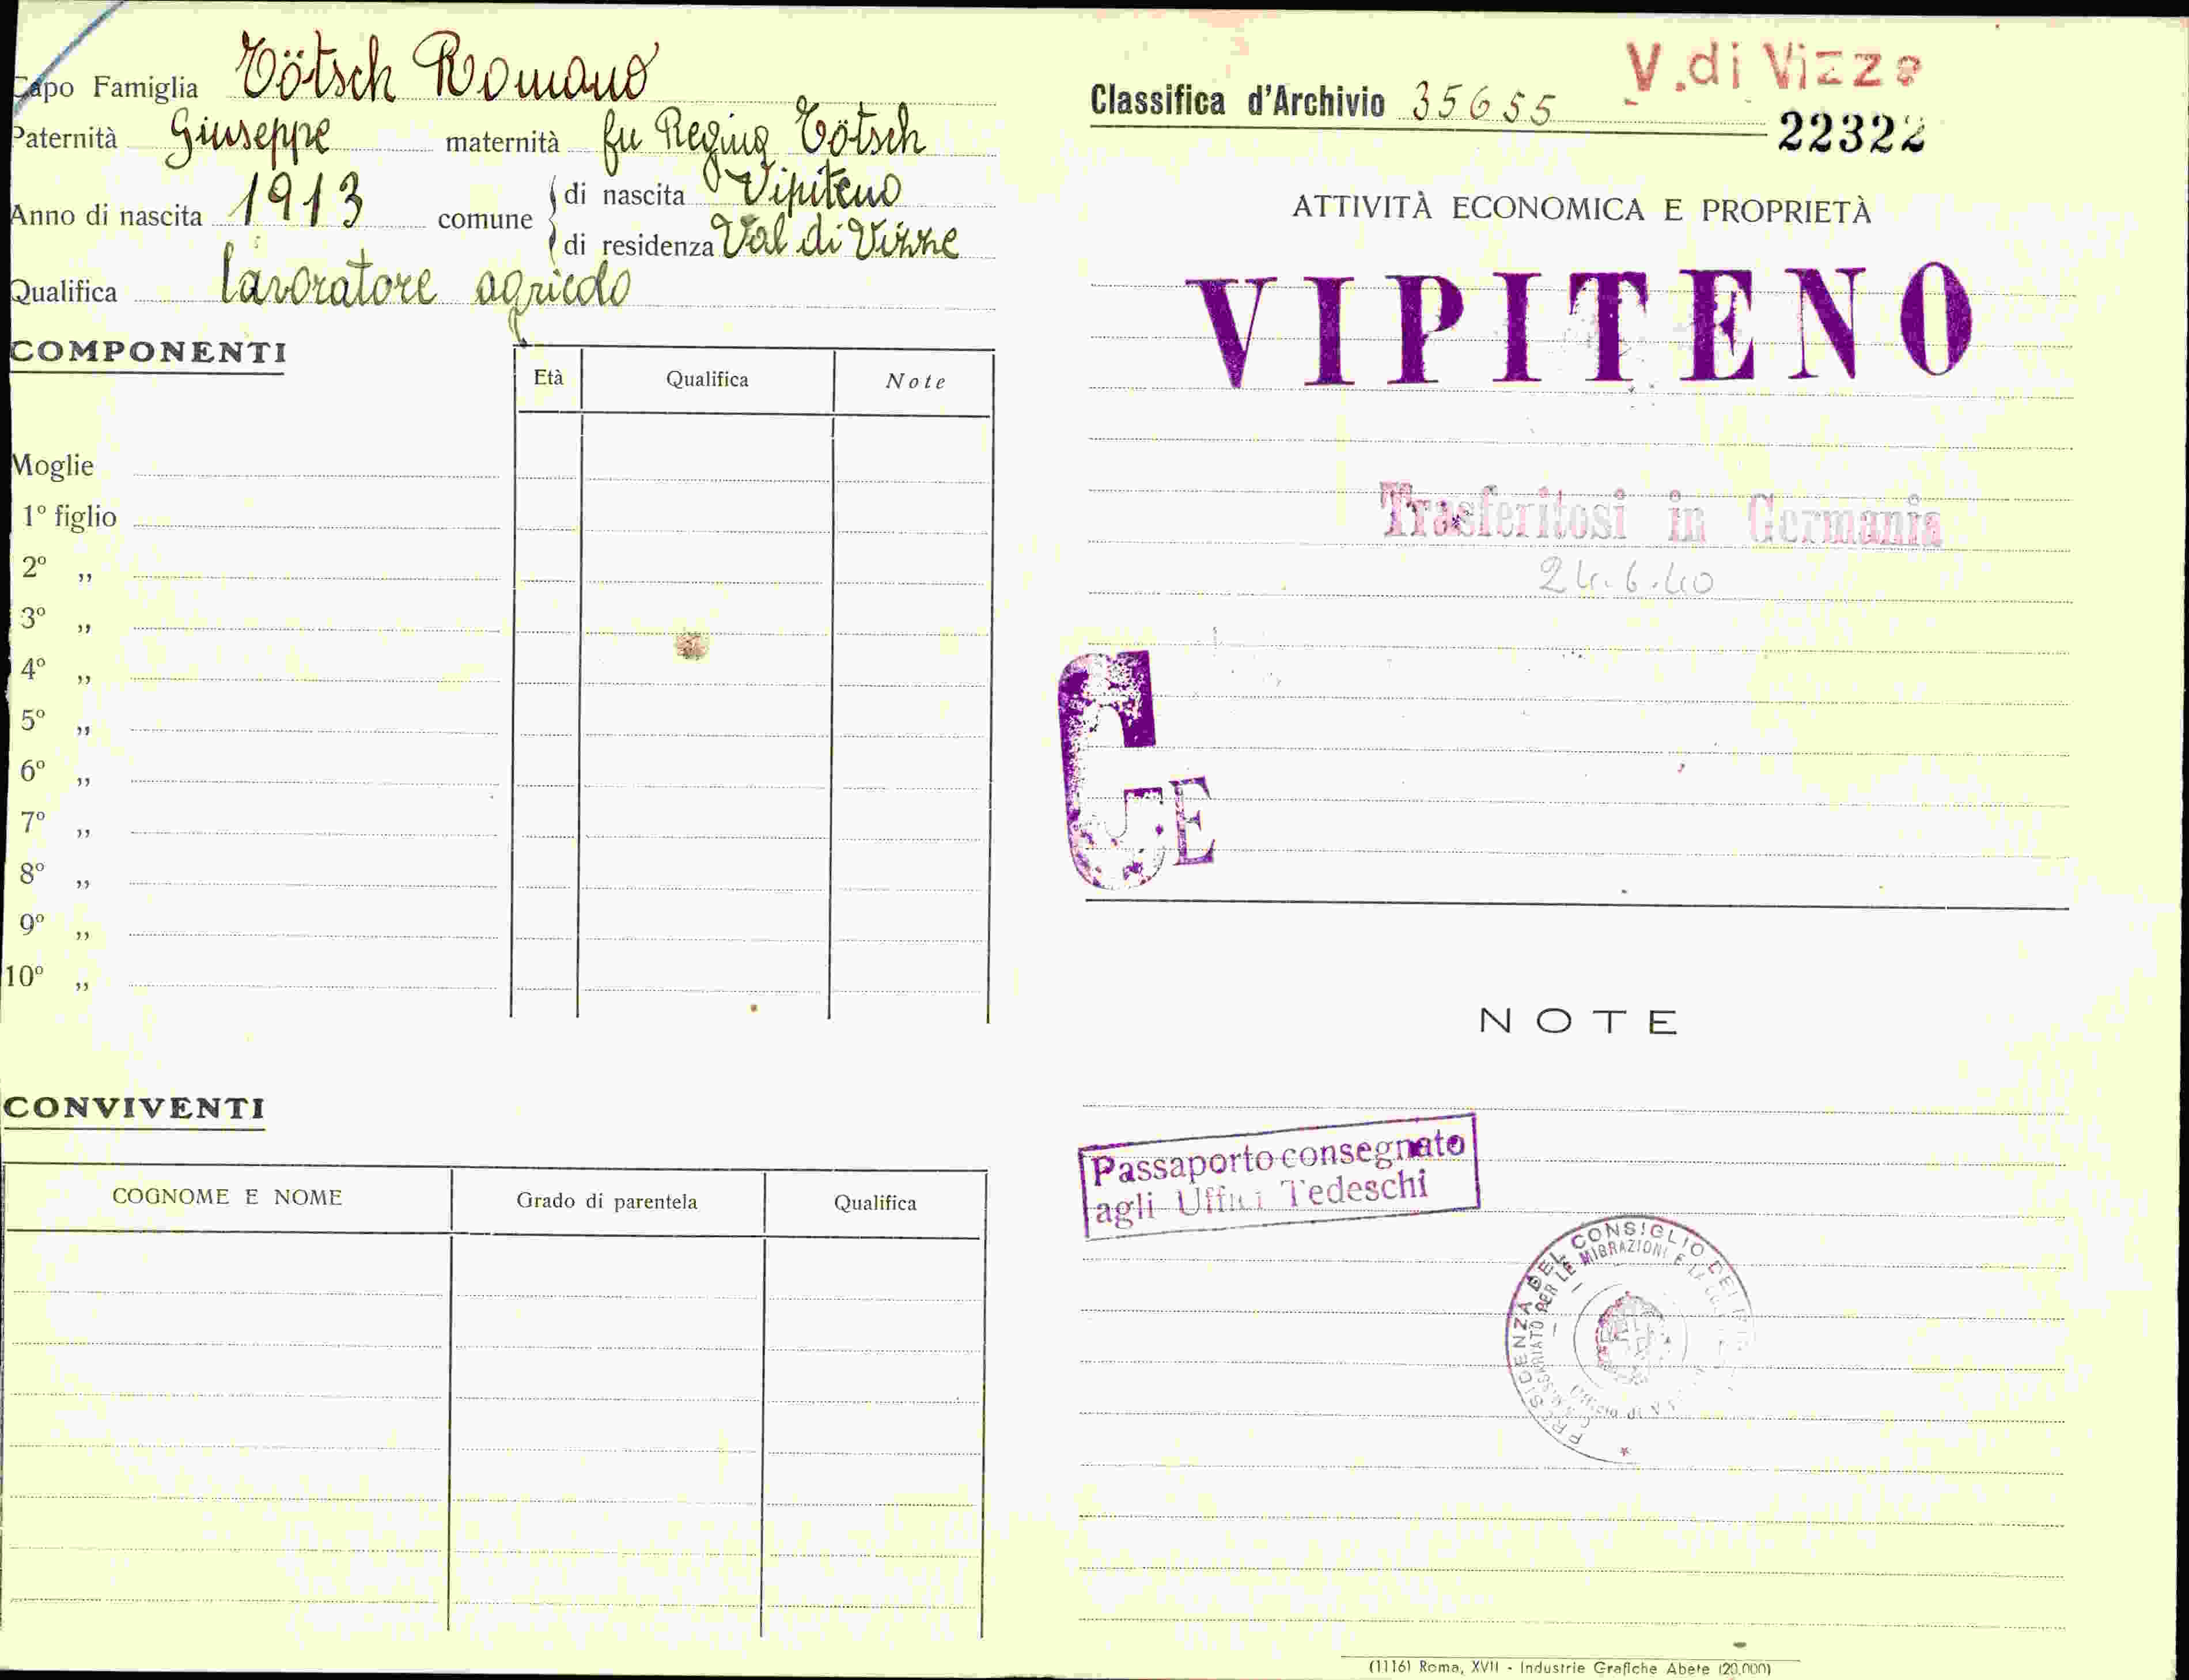 Capo Famiglia Tötsch Romano
Paternità Giuseppe maternità fu Regina Tötsch
Anno di nascita 1913 comune di nascita Vipiteno
di residenza Val di Vizze
Qualifica lavoratore agricolo
COMPONENTI
Età Qualifica Note
Moglie
1º figlio
2º „
3º „
4º „
5º „
6º „
7º „
8º „
9º „
10º „
CONVIVENTI
COGNOME E NOME Grado di parentela Qualifica
V. di Vizze
Classifica d'Archivio 35655
22322
ATTIVITÀ ECONOMICA E PROPRIETÀ
VIPITENO
Trasferitosi in Germania
24.6.40
G
E
NOTE
Passaporto consegnato
agli Uffici Tedeschi
PRESIDENZA DEL CONSIGLIO DEI
COMMISSARIATO PER LE MIGRAZIONI E LA
Ufficio di
(1116) Roma, XVII - Industrie Grafiche Abete (20.000)